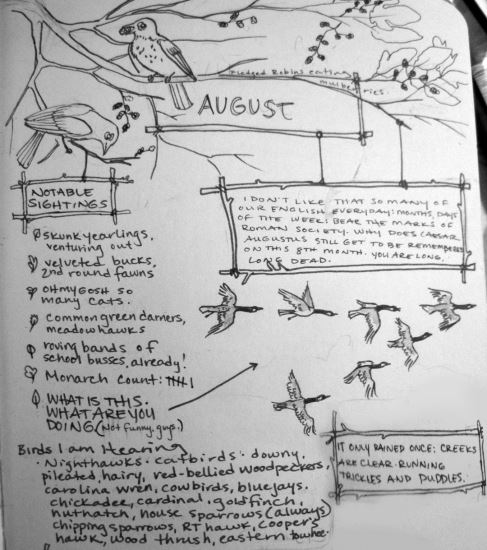 Fledged Robins eating
mulberries.
AUGUST
NOTABLE
SIGHTINGS
I DON'T LIKE THAT SO MANY OF
OUR ENGLISH EVERYDAY: MONTHS, DAYS
OF THE WEEK: BEAR THE MARKS OF
ROMAN SOCIETY. WHY DOES CAESAR
AUGUSTUS STILL GET TO BE REMEMBERED
ON THIS 8TH MONTH. YOU ARE LONG,
LONG DEAD.
skunk yearlings,
venturing out
velveted bucks,
2nd round fawns
OHMYGOSH SO
many cats.
common green darners,
meadowhawks
roving bands of
school busses, already!
Monarch count:
WHAT IS THIS.
WHAT ARE YOU
DOING (Not funny, guys.)
Birds I am Hearing
· Nighthawks · catbirds · downy,
pileated, hairy, red-bellied woodpeckers,
carolina wren, cowbirds, bluejays.
chickadee, cardinal, goldfinch,
nuthatch, house sparrows (always)
chipping sparrows, RT hawk, coopers
hawk, wood thrush, eastern towhee.
IT ONLY RAINED ONCE: CREEKS
ARE CLEAR-RUNNING
TRICKLES AND PUDDLES.